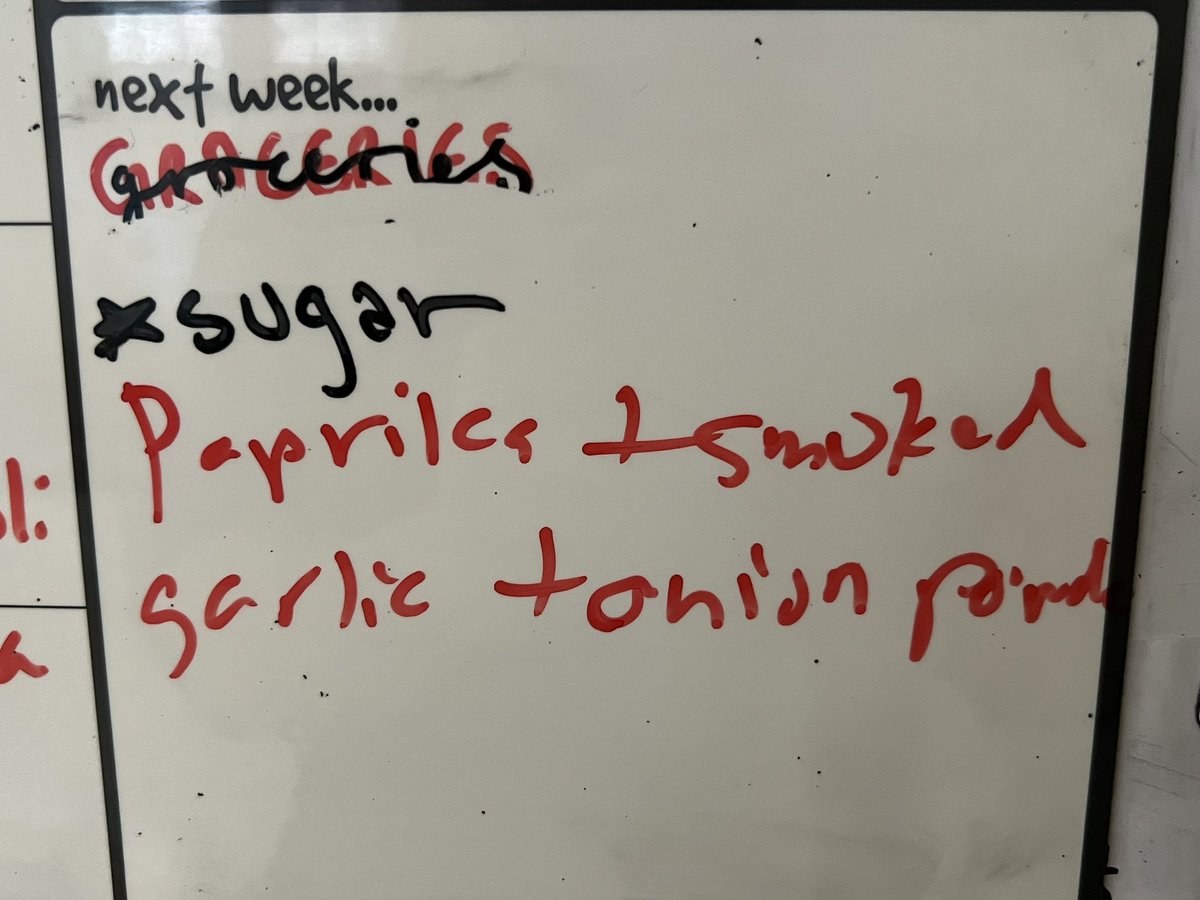 next week...
GROCERIES
groceries
*sugar
Paprika + smoked
garlic + onion